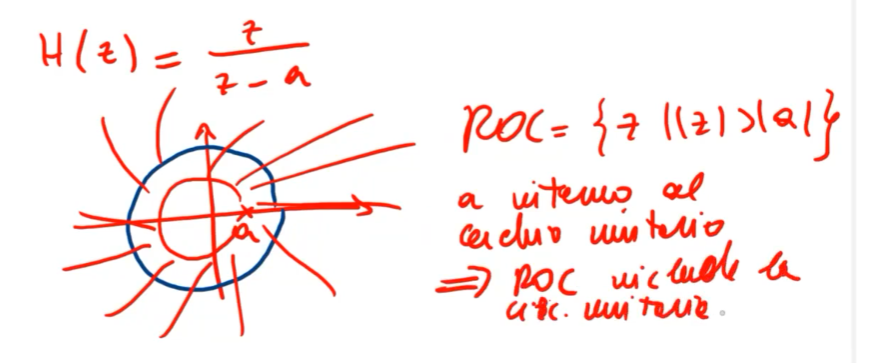 H(z) = z / (z - a)
a
ROC = { z | |z| > |a| }
a interno al
cerchio unitario
⇒ ROC include la
circ. unitaria.